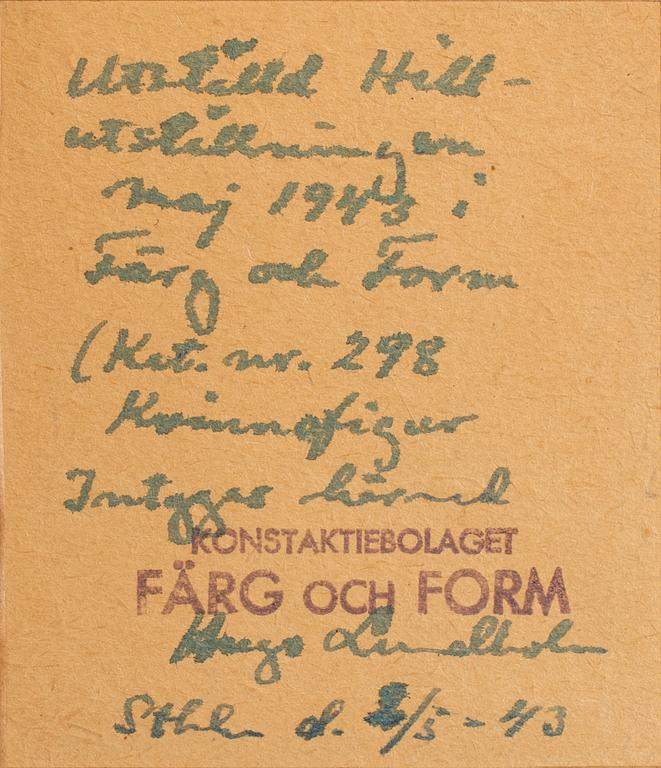 Utställd Hill-
utställningen
maj 1943 i
Färg och Form
(Kat. nr. 298
Kvinnofigur
Intygas härmed
KONSTAKTIEBOLAGET
FÄRG OCH FORM
Hugo Lundholm
Sthlm d. /5 - 43